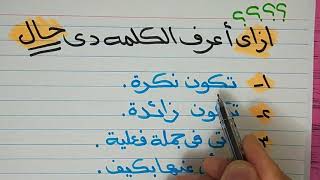 ؟؟؟؟
ازاى أعرف الكلمه دى حال
١- تكون نكرة.
تكون زائدة.
٣ فى جملة فعلية.
عنها بكيف.